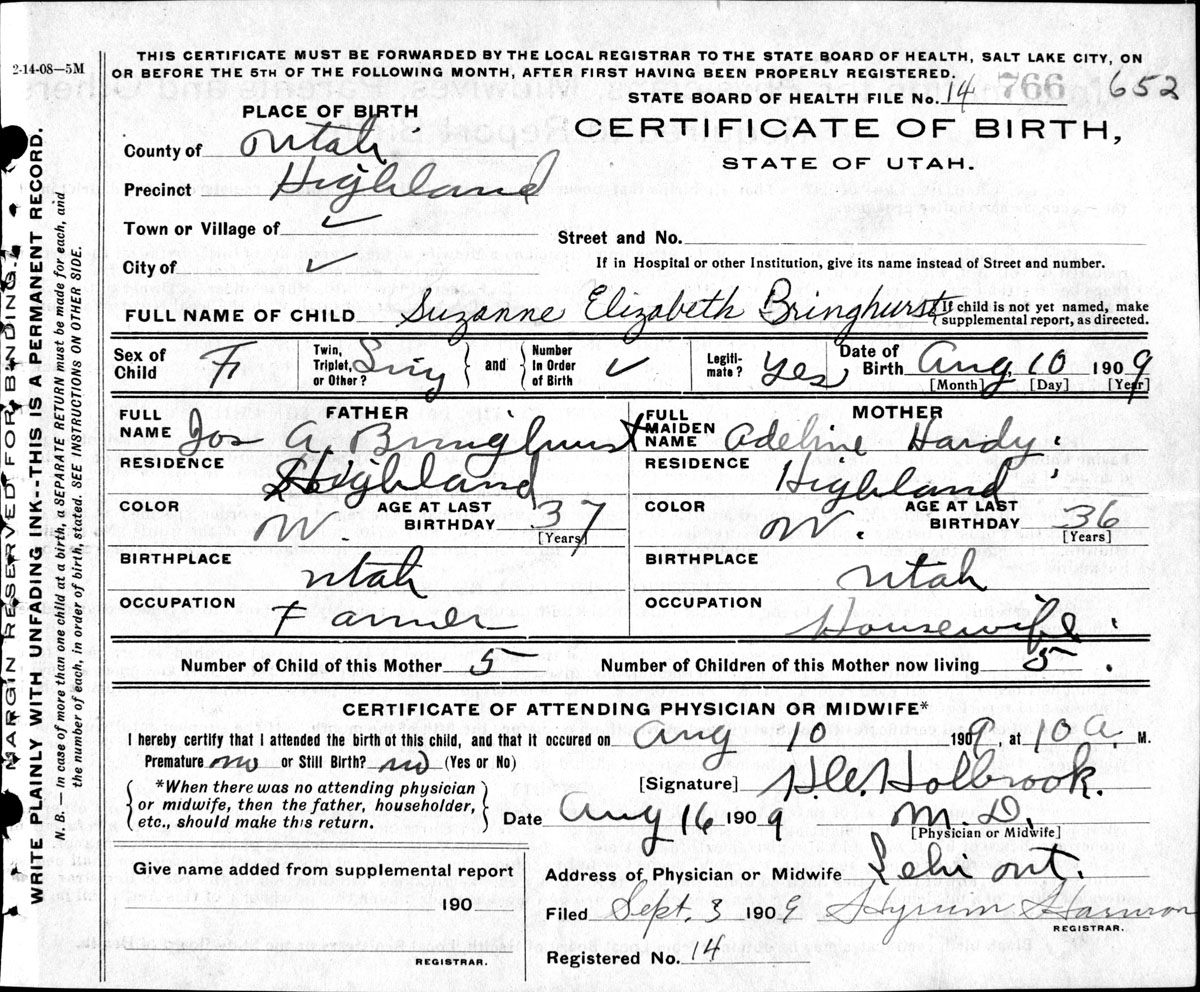 2-14-08—5M
THIS CERTIFICATE MUST BE FORWARDED BY THE LOCAL REGISTRAR TO THE STATE BOARD OF HEALTH, SALT LAKE CITY, ON
OR BEFORE THE 5TH OF THE FOLLOWING MONTH, AFTER FIRST HAVING BEEN PROPERLY REGISTERED.
STATE BOARD OF HEALTH FILE No. 14 766 652
PLACE OF BIRTH
CERTIFICATE OF BIRTH,
STATE OF UTAH.
County of Utah
Precinct Highland
Town or Village of ✓
Street and No.
City of ✓
If in Hospital or other Institution, give its name instead of Street and number.
FULL NAME OF CHILD Suzanne Elizabeth Bringhurst { If child is not yet named, make
supplemental report, as directed.
Sex of Child F. Twin, Triplet, or Other? Sing } and { Number In Order of Birth ✓ Legiti-mate? Yes Date of Birth Aug 10 1909
[Month] [Day] [Year]
FATHER MOTHER
FULL NAME Jos A. Bringhurst FULL MAIDEN NAME Adeline Hardy.
RESIDENCE Highland RESIDENCE Highland
COLOR W. AGE AT LAST BIRTHDAY 37 [Years] COLOR W. AGE AT LAST BIRTHDAY 36 [Years]
BIRTHPLACE Utah BIRTHPLACE Utah
OCCUPATION Farmer OCCUPATION Housewife.
Number of Child of this Mother 5 Number of Children of this Mother now living 5.
CERTIFICATE OF ATTENDING PHYSICIAN OR MIDWIFE*
I hereby certify that I attended the birth of this child, and that it occured on Aug 10 1909, at 10 A. M.
Premature no or Still Birth? no (Yes or No)
[Signature] Holbrook.
{ *When there was no attending physician
or midwife, then the father, householder,
etc., should make this return. }
Date Aug 16 1909 M.D.
[Physician or Midwife]
Give name added from supplemental report
190
REGISTRAR.
Address of Physician or Midwife Lehi
Filed Sept. 3 1909 Hyrum Harmon
REGISTRAR.
Registered No. 14
MARGIN RESERVED FOR BINDING.
WRITE PLAINLY WITH UNFADING INK--THIS IS A PERMANENT RECORD.
N. B.— In case of more than one child at a birth, a SEPARATE RETURN must be made for each, and
the number of each, in order of birth, stated. SEE INSTRUCTIONS ON OTHER SIDE.